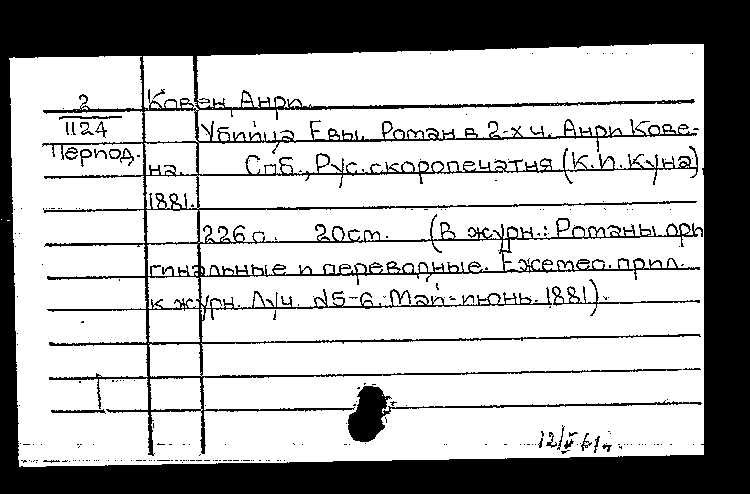 2
1124
Период.
Ковен, Анри.
Убийца Евы. Роман в 2-х ч. Анри Кове-
на. Спб., Рус. скоропечатня (К.П. Куна),
1881.
226 с. 20 см. (В журн.: Романы ори
гинальные и переводные. Ежемес. прил.
к журн. Луч. №5-6. Май-июнь. 1881).